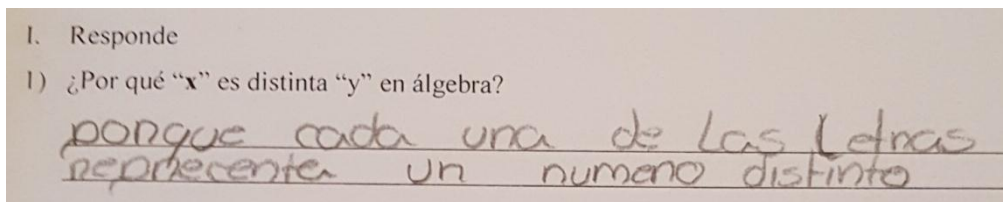 I. Responde
1) ¿Por qué “x” es distinta “y” en álgebra?
porque cada una de Las Letras
reprecenter un numero distinto